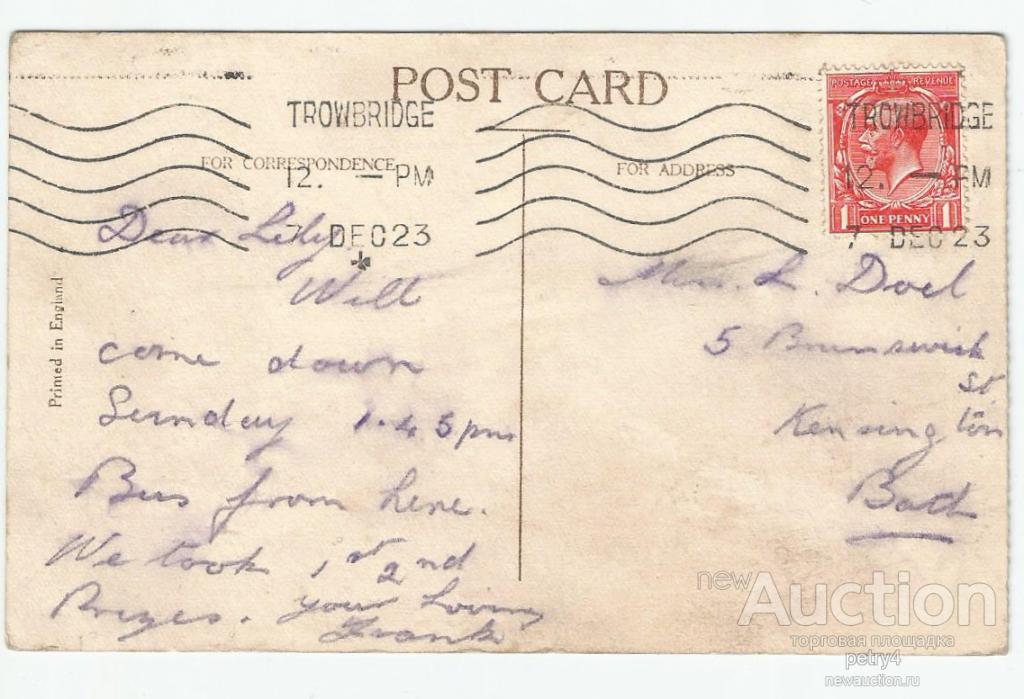 POST CARD
TROWBRIDGE
12. — PM
7 DEC 23
TROWBRIDGE
12. — PM
7 DEC 23
POSTAGE REVENUE
1 ONE PENNY 1
FOR CORRESPONDENCE
FOR ADDRESS
Printed in England
Dear Lily
Will
come down
Sunday 1.45 pm
Bus from here.
We took 1st 2nd
Prizes. your loving
Frank
L. Doel
5 Brunswick
St
Kensington
Bath
newAuction
торговая площадка
petry4
newauction.ru